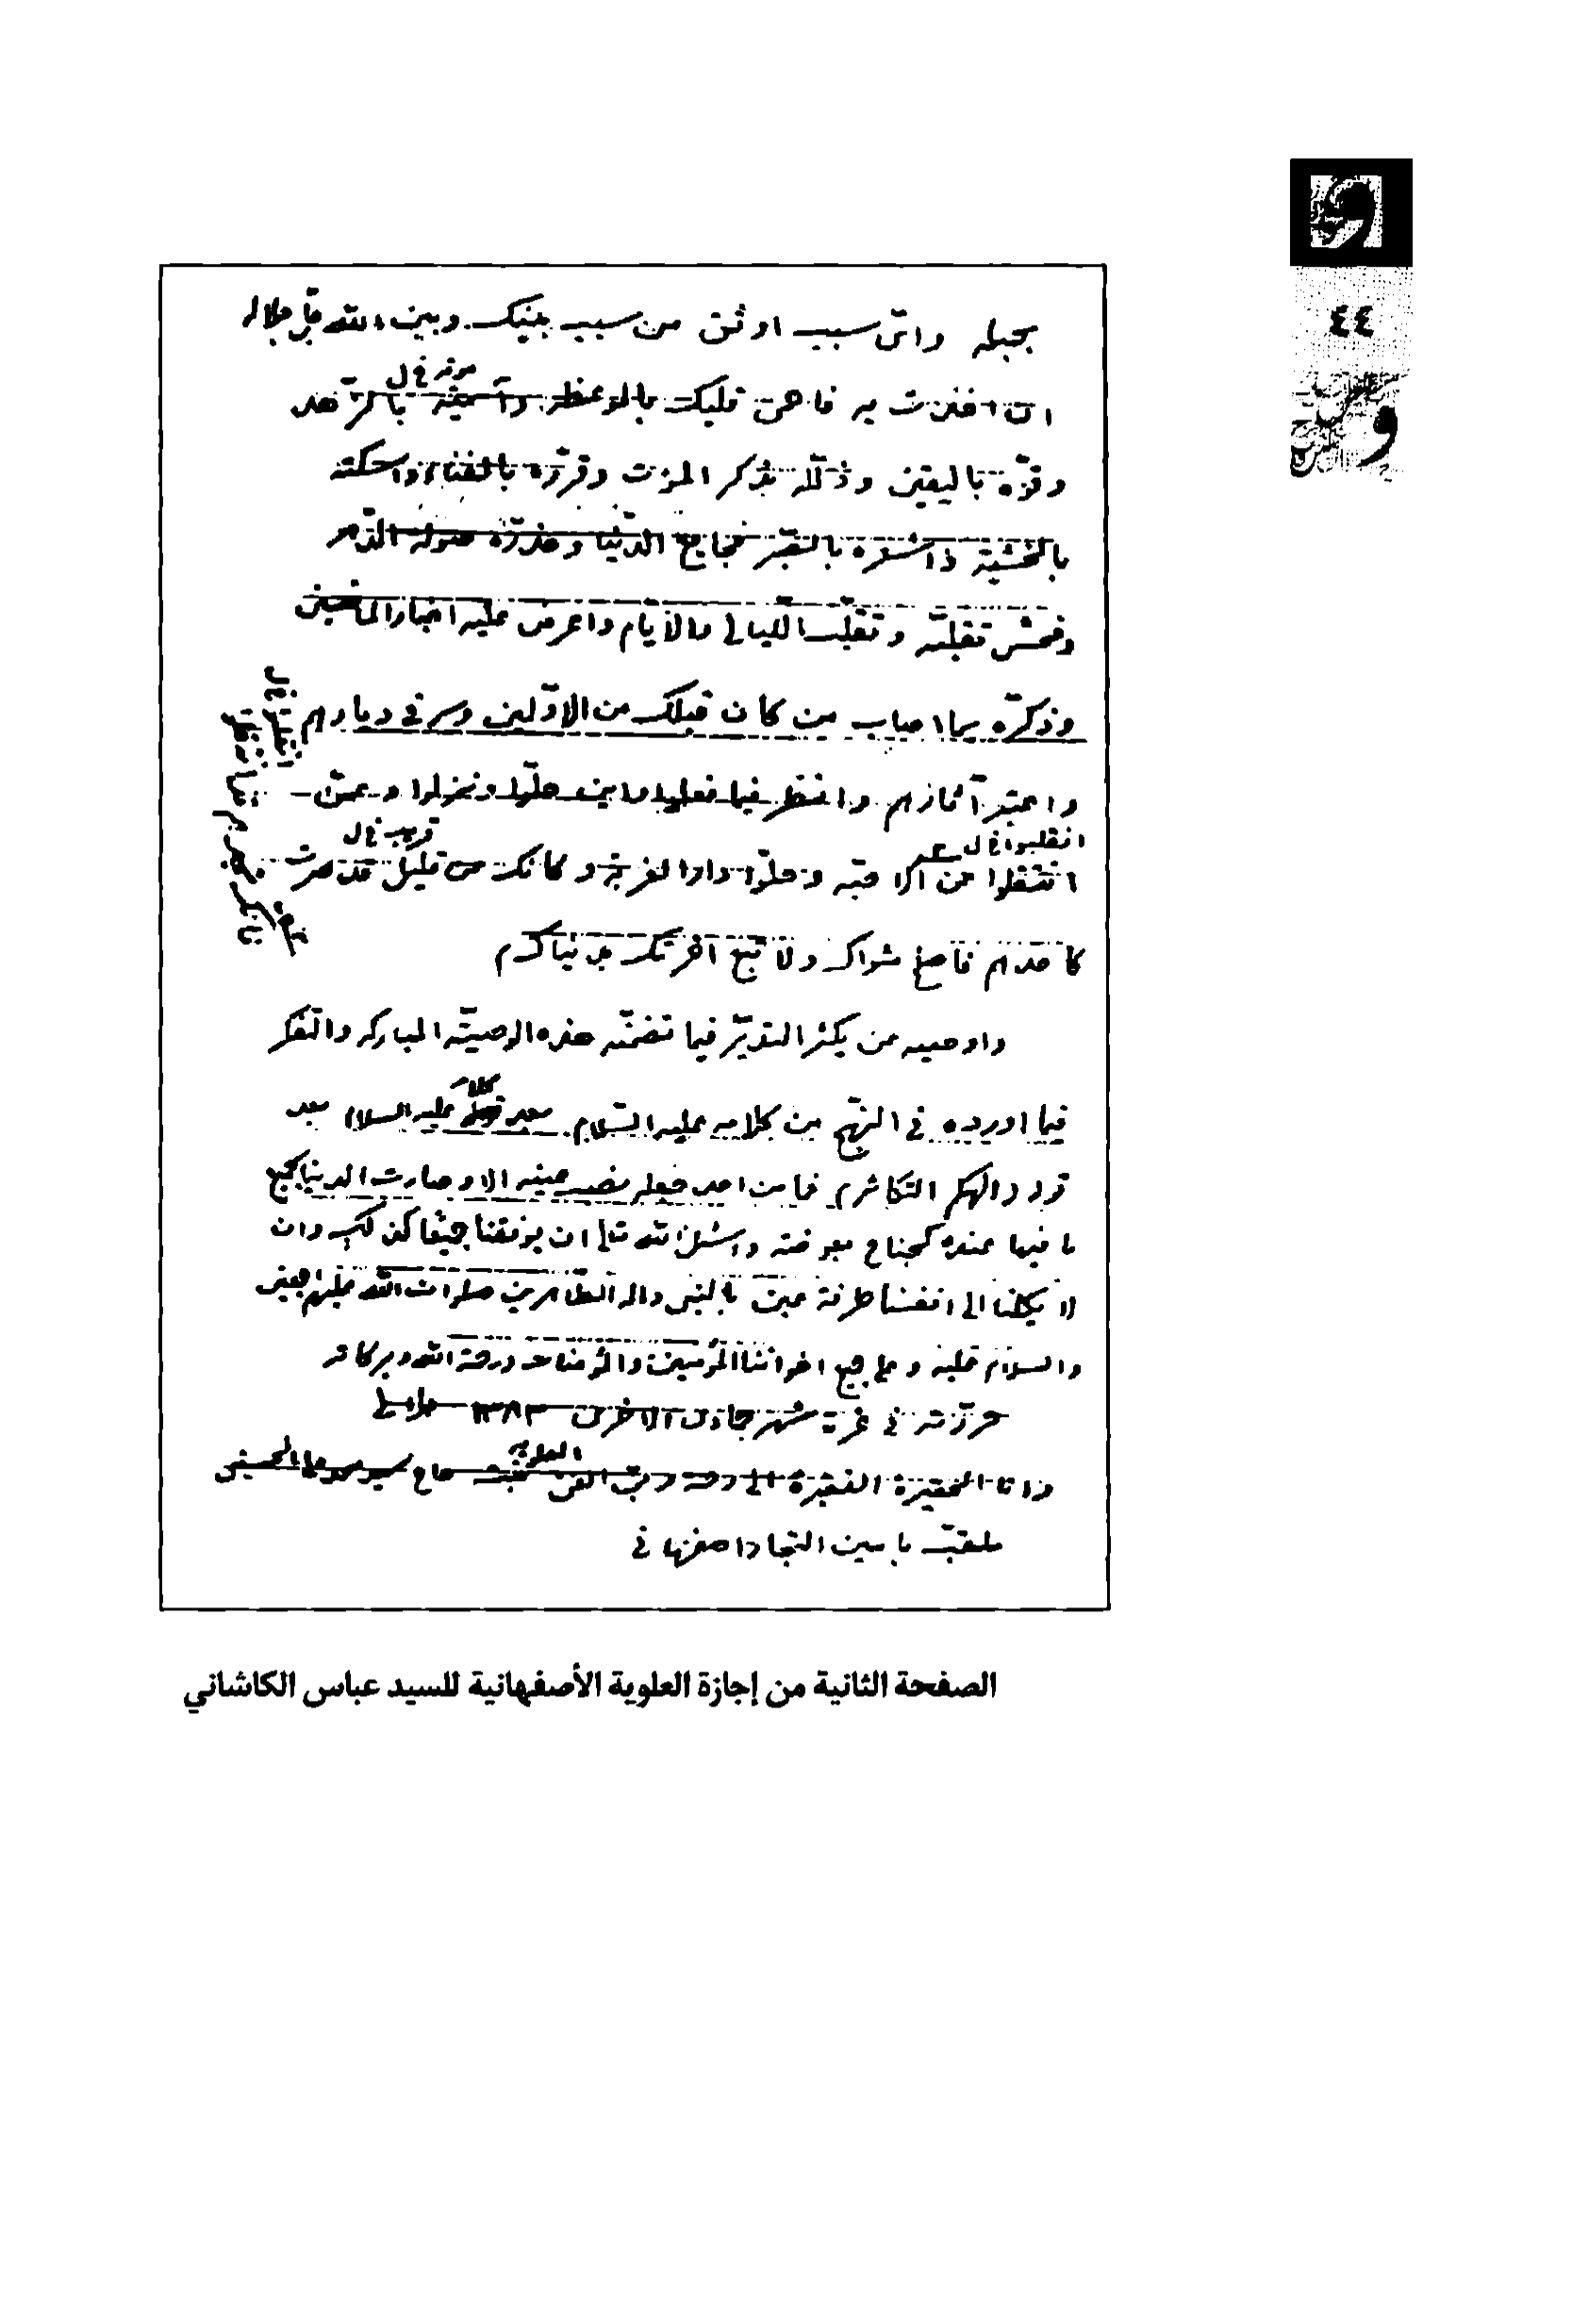 ٤٤
بحبله وايّ سبب اوثق من سبب بينك وبين الله جلّ جلاله
ان اخذت به فاحى قلبك بالموعظه وامته بالزّهد
موته خ ل
وقوّه باليقين وذلّله بذكر الموت وقرّره بالفناء واسكنه
بالخشية واشعره بالصّبر فجايع الدّنيا وحذّره صولة الدّهر
وفحش تقلبّه وتقلّب اللّيالي والأيّام واعرض عليه اخبار الماضين
وذكرّه بما اصاب من كان قبلك من الاوّلين وسر في ديارهم
واعتبر آثارهم وانظر فيما فعلوا واين حلّوا ونزلوا وعمّن
انقلبوا خ ل
قريب خ ل
انتقلوا عن الاحبّه وحلّوا دار الغربة وكانك عن قليل قد صرت
كاحدهم فاصلح مثواك ولا تبع آخرتك بدنياك
واوصيه من يكثر التدبّر فيما تضمنّه هذه الوصيّة المباركه والتفكر
فيما اورده في النهج من كلامه عليه السّلام بعد عليه السلام بعد
كلام
الهيكم التكاثر فما من احد جعله نصب عينيه الا وصارت الدنيا بجميع
ما فيها عنده كجناح بعوضة واسئل الله تعالى ان يوفقنا جميعا لذلك وان
لا يكلنا الى انفسنا طرفة عين بالنبي واله الطّاهرين صلوات الله عليهم اجمعين
والسلام عليه وعلى جميع اخواننا المؤمنين والمؤمنات ورحمة الله وبركاته
حرّرته في غرة شهر جمادى الاخرى ١٣٨٣
وانا الحقيرة الفقيرة الى رحمة ربّ الغنى العلويه بنت حاج سيد محمد على الحسينى
ملقبّ بامين التجار اصفهانى
الصفحة الثانية من إجازة العلوية الأصفهانية للسيد عباس الكاشاني